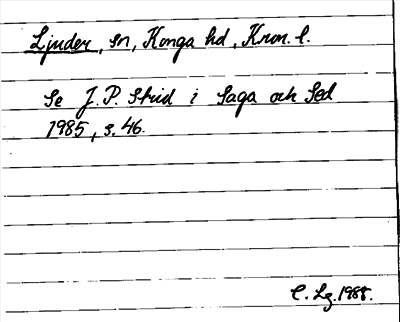 Ljuder, sn, Konga hd, Kron. l.
Se J. P. Strid i Saga och Sed
1985, s. 46.
C. Lg. 1988.